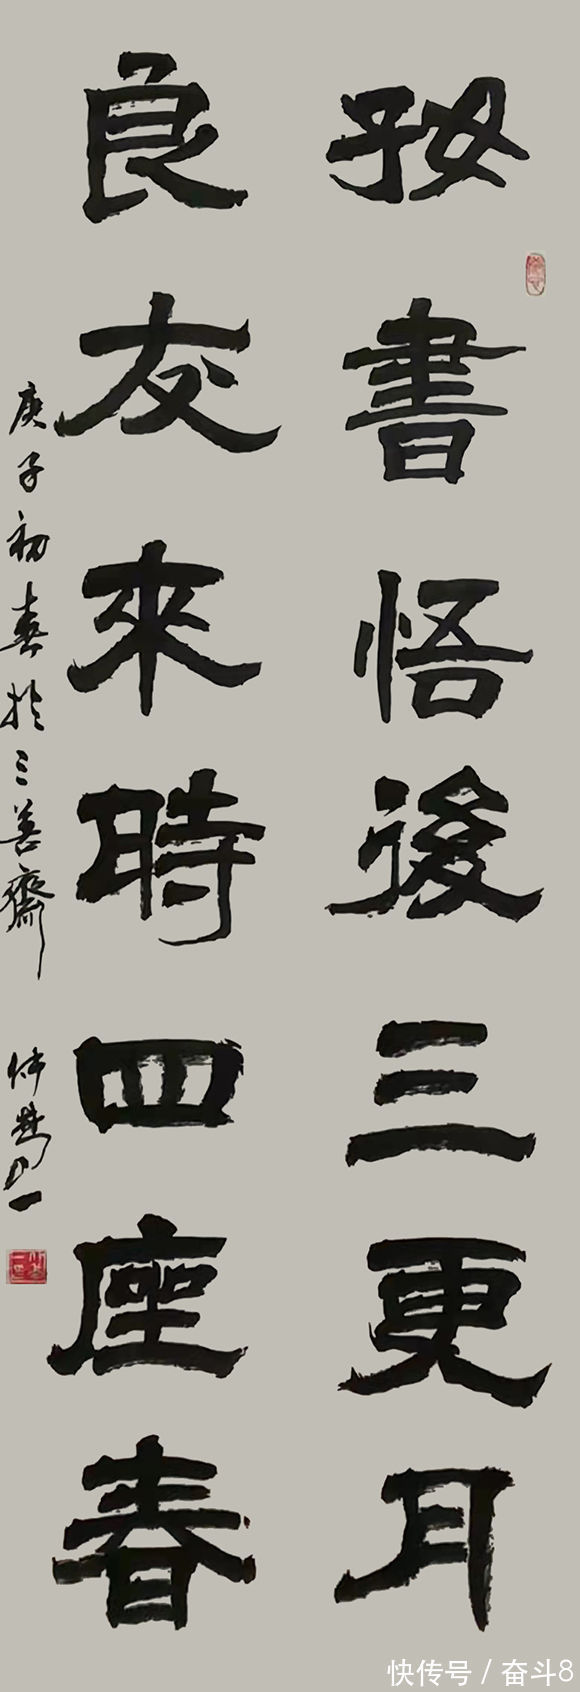 好書悟後三更月
良友來時四座春
庚子初春於三善齋
快传号 / 奋斗8